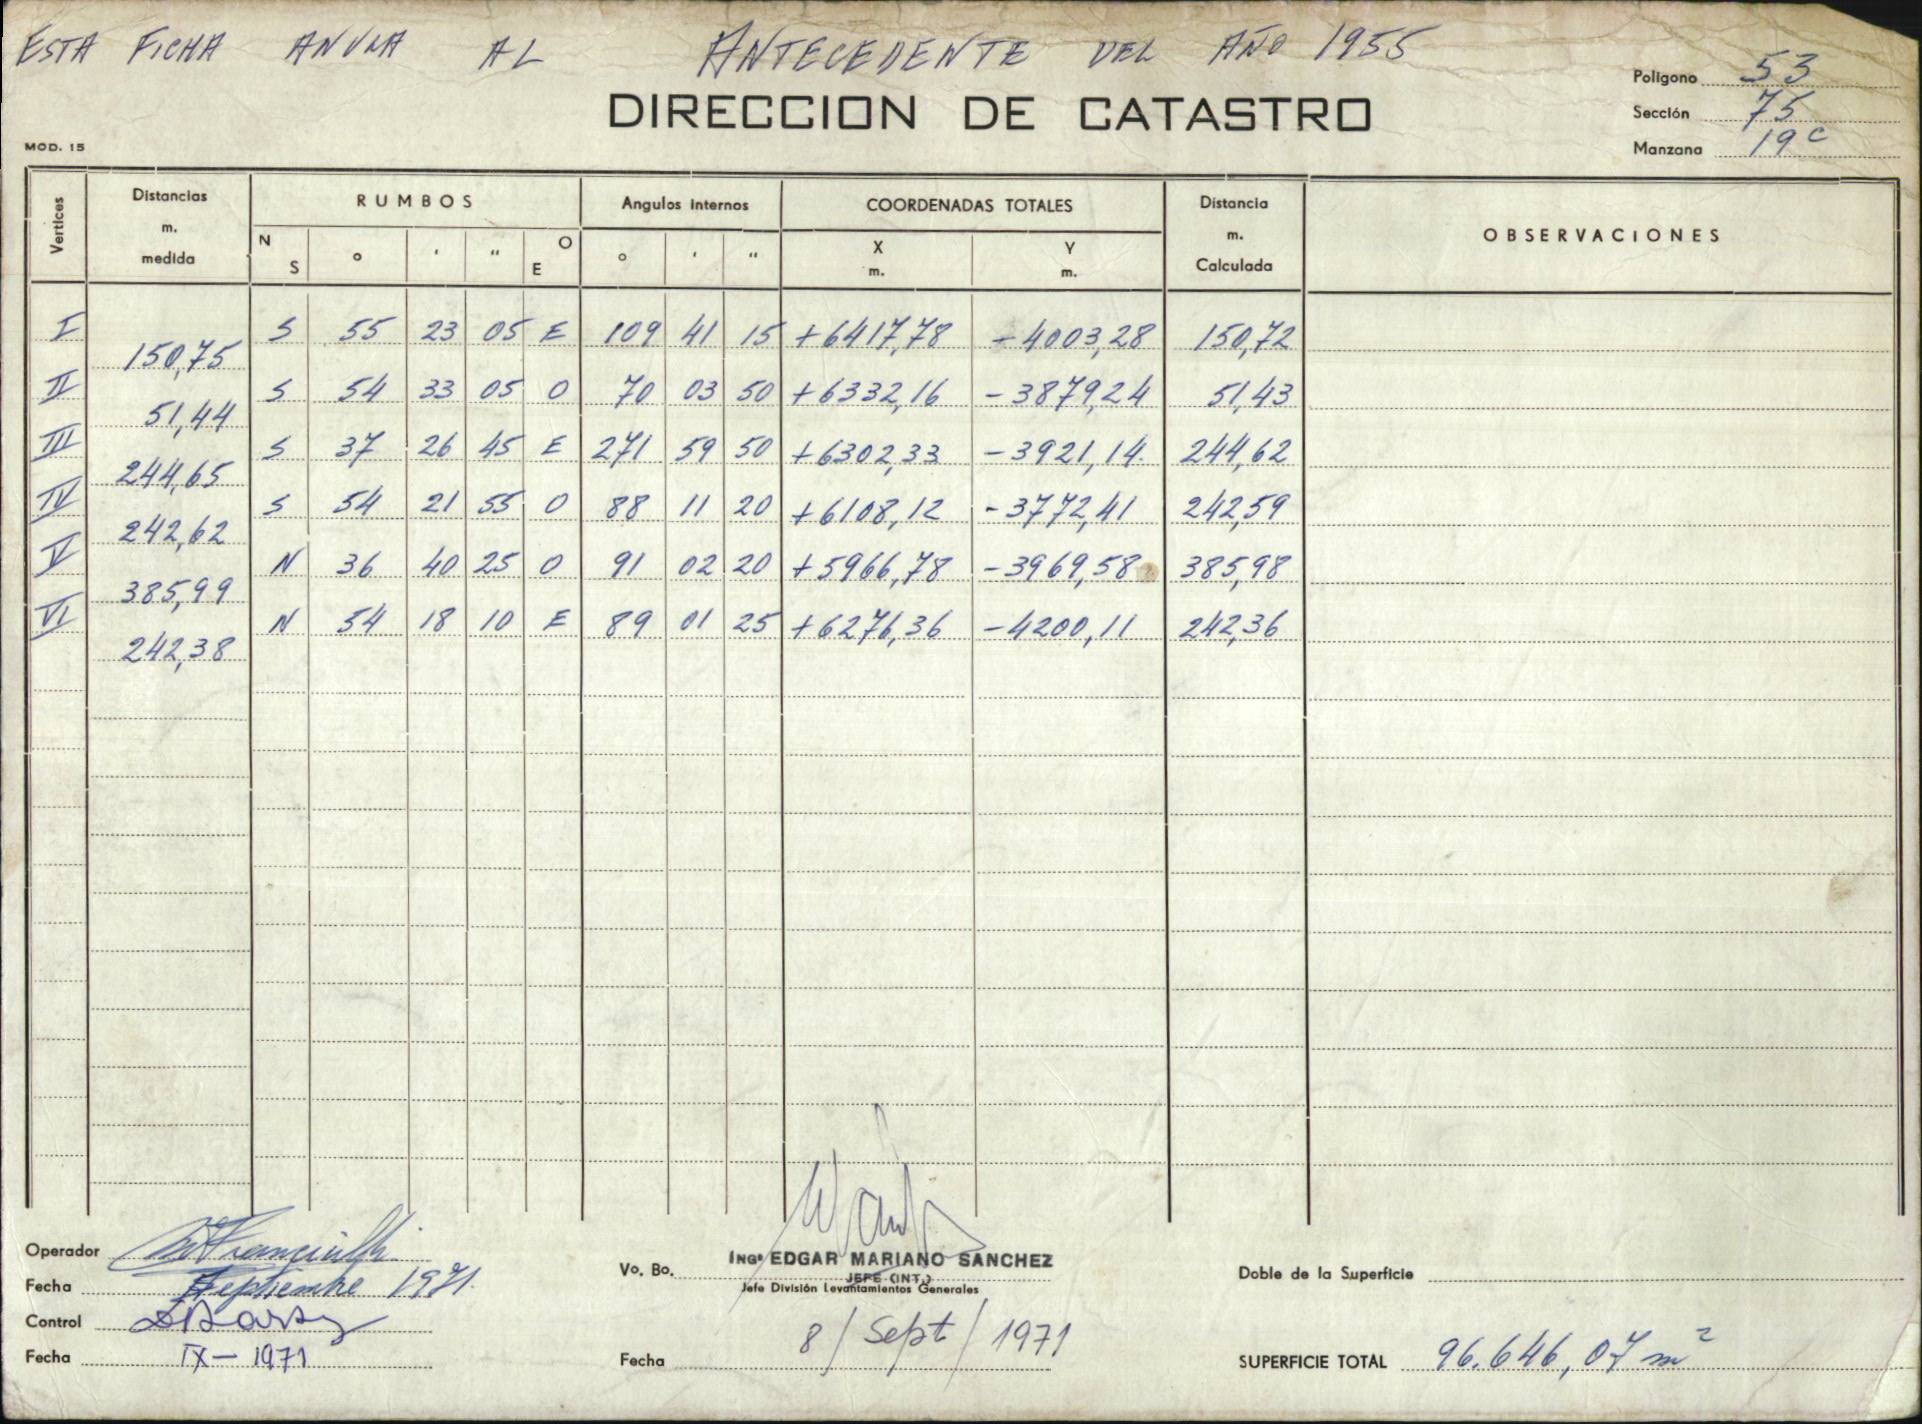 ESTA FICHA ANULA AL ANTECEDENTE DEL AÑO 1955
Polígono 53
DIRECCION DE CATASTRO
Sección 75
MOD. 15
Manzana 19 c
Vertices Distancias m. medida RUMBOS Angulos internos COORDENADAS TOTALES Distancia m. Calculada OBSERVACIONES
N S ° ' " O E ° ' " X m. Y m.
I S 55 23 05 E 109 41 15 +6417,78 -4003,28 150,72
150,75
II S 54 33 05 O 70 03 50 +6332,16 -3879,24 51,43
51,44
III S 37 26 45 E 271 59 50 +6302,33 -3921,14 244,62
244,65
IV S 54 21 55 O 88 11 20 +6108,12 -3772,41 242,59
242,62
V N 36 40 25 O 91 02 20 +5966,78 -3969,58 385,98
385,99
VI N 54 18 10 E 89 01 25 +6276,36 -4200,11 242,36
242,38
Operador
Fecha Septiembre 1971.
Control
Fecha IX-1971
Vo. Bo. INGº EDGAR MARIANO SANCHEZ
JEFE (INT.)
Jefe División Levantamientos Generales
Fecha 8/Sept/1971
Doble de la Superficie
SUPERFICIE TOTAL 96.646,07 m²